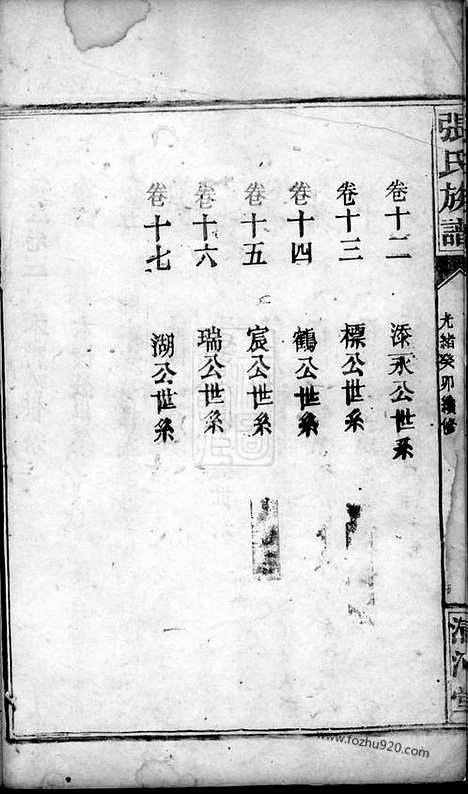 張氏族譜
光緒癸卯續修
清河堂
卷十二 添永公世系
卷十三 標公世系
卷十四 鶴公世系
卷十五 宸公世系
卷十六 瑞公世系
卷十七 湖公世系
www.fozhu920.com